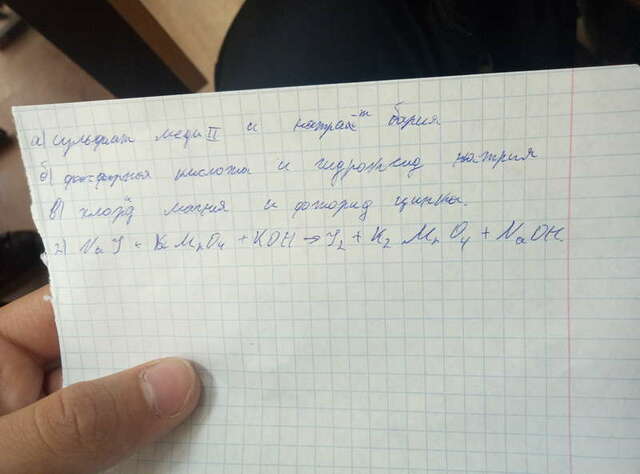 а) сульфат меди II и нитрат бария
б) фосфорная кислота и гидроксид натрия
в) хлорид магния и фторид цинка.
2) NaJ + KMnO4 + KOH → J2 + K2MnO4 + NaOH